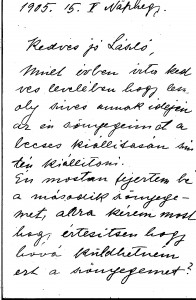 1905. 15. V Náphegy.
Kedves jó László,
Mult évben irta ked
ves levelében hogy les
oly szives annak idején
az én szőnyegeimet a
becses kiállitásán szin
tén kiállitani.
Én mostan fejeztem be
a második szőnyege-
met, arra kérem most
hogy értesitsen hogy
hová küldhetném
ezt a szőnyegemet?